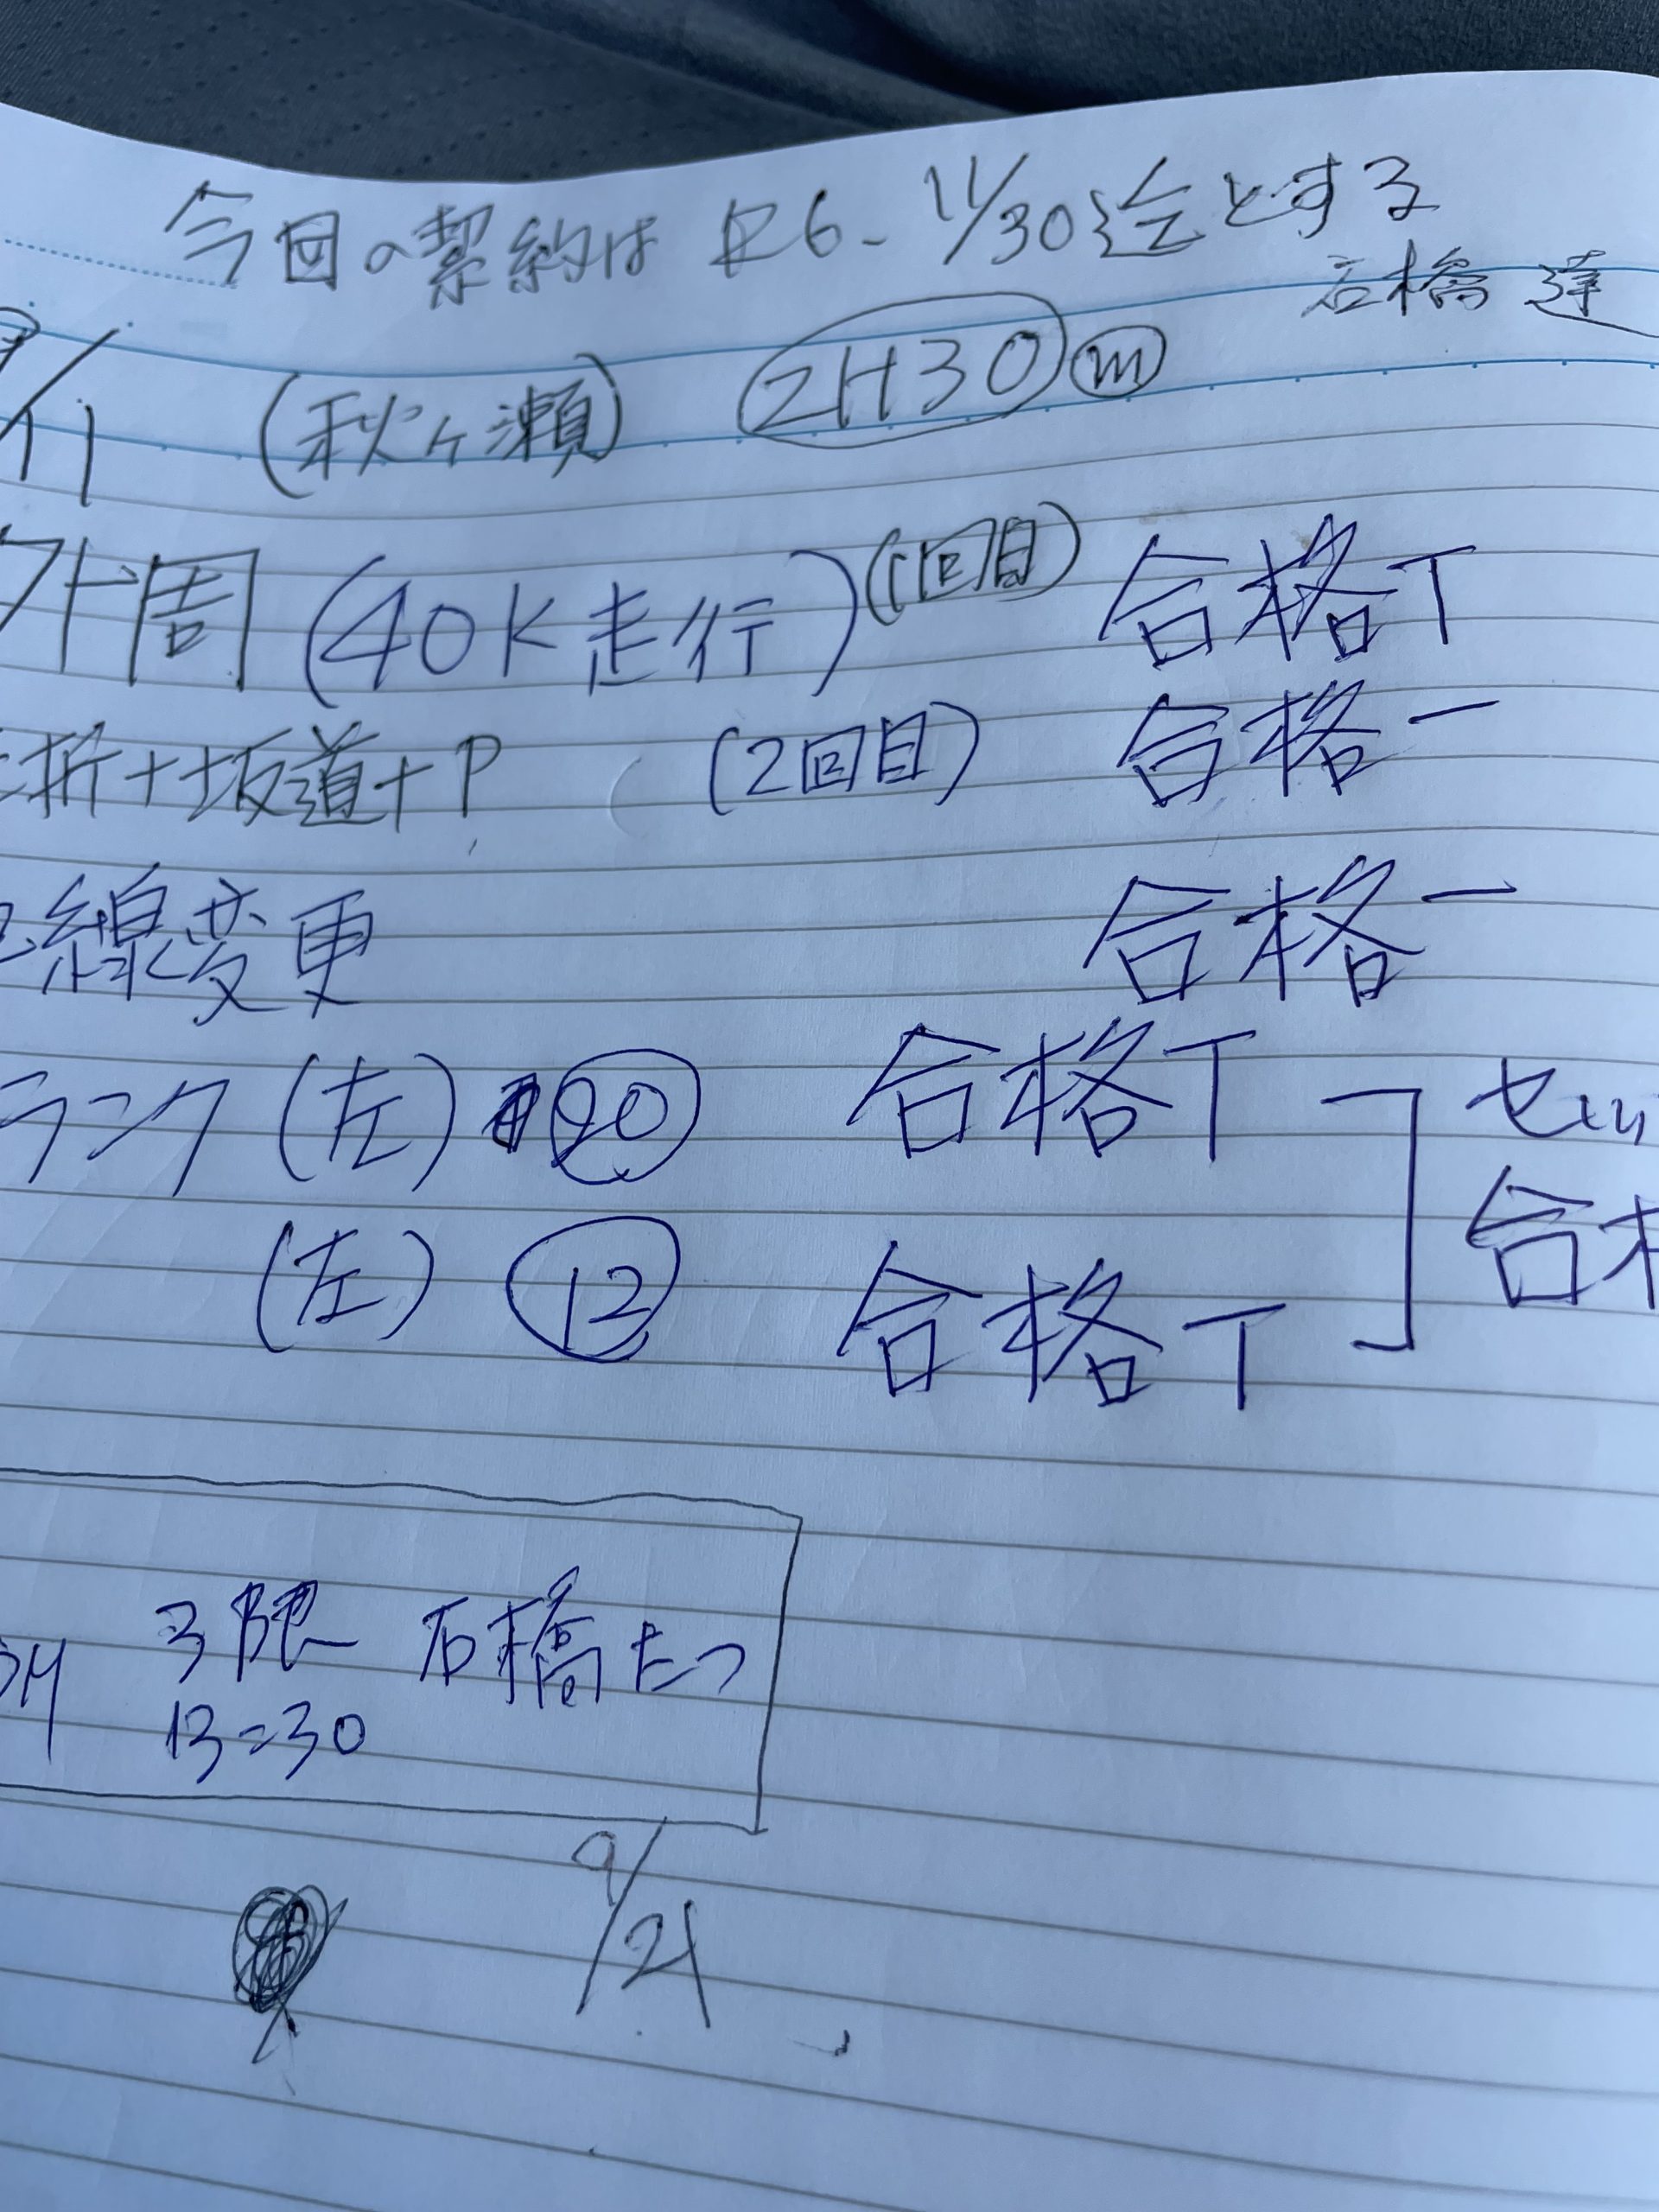 今回の契約は R6. 11/30迄とする
石橋 達
(秋ヶ瀬) 2H30 m
外周 (40K走行) (1回目) 合格T
折+坂道+P (2回目) 合格一
線変更 合格一
ランク (左) 20 合格T
(左) 12 合格T
合格
3限 石橋たつ
13=30
9/21